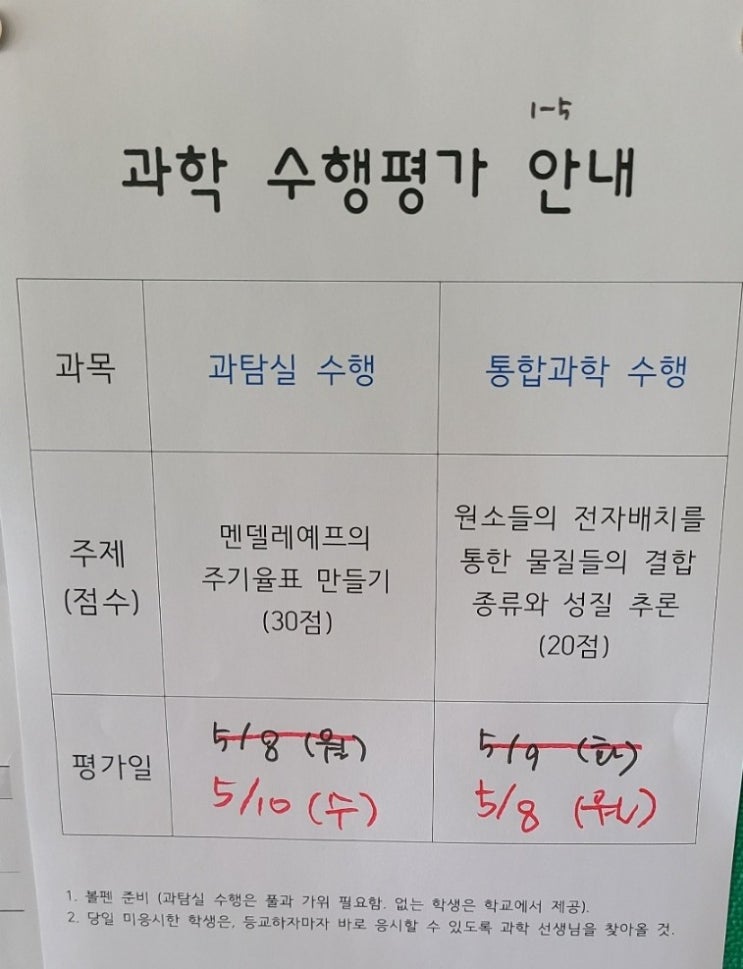 1-5
과학 수행평가 안내
과목
과탐실 수행
통합과학 수행
주제
(점수)
멘델레예프의
주기율표 만들기
(30점)
원소들의 전자배치를
통한 물질들의 결합
종류와 성질 추론
(20점)
평가일
5/8 (월)
5/10 (수)
5/9 (화)
5/8 (월)
1. 볼펜 준비 (과탐실 수행은 풀과 가위 필요함. 없는 학생은 학교에서 제공).
2. 당일 미응시한 학생은, 등교하자마자 바로 응시할 수 있도록 과학 선생님을 찾아올 것.